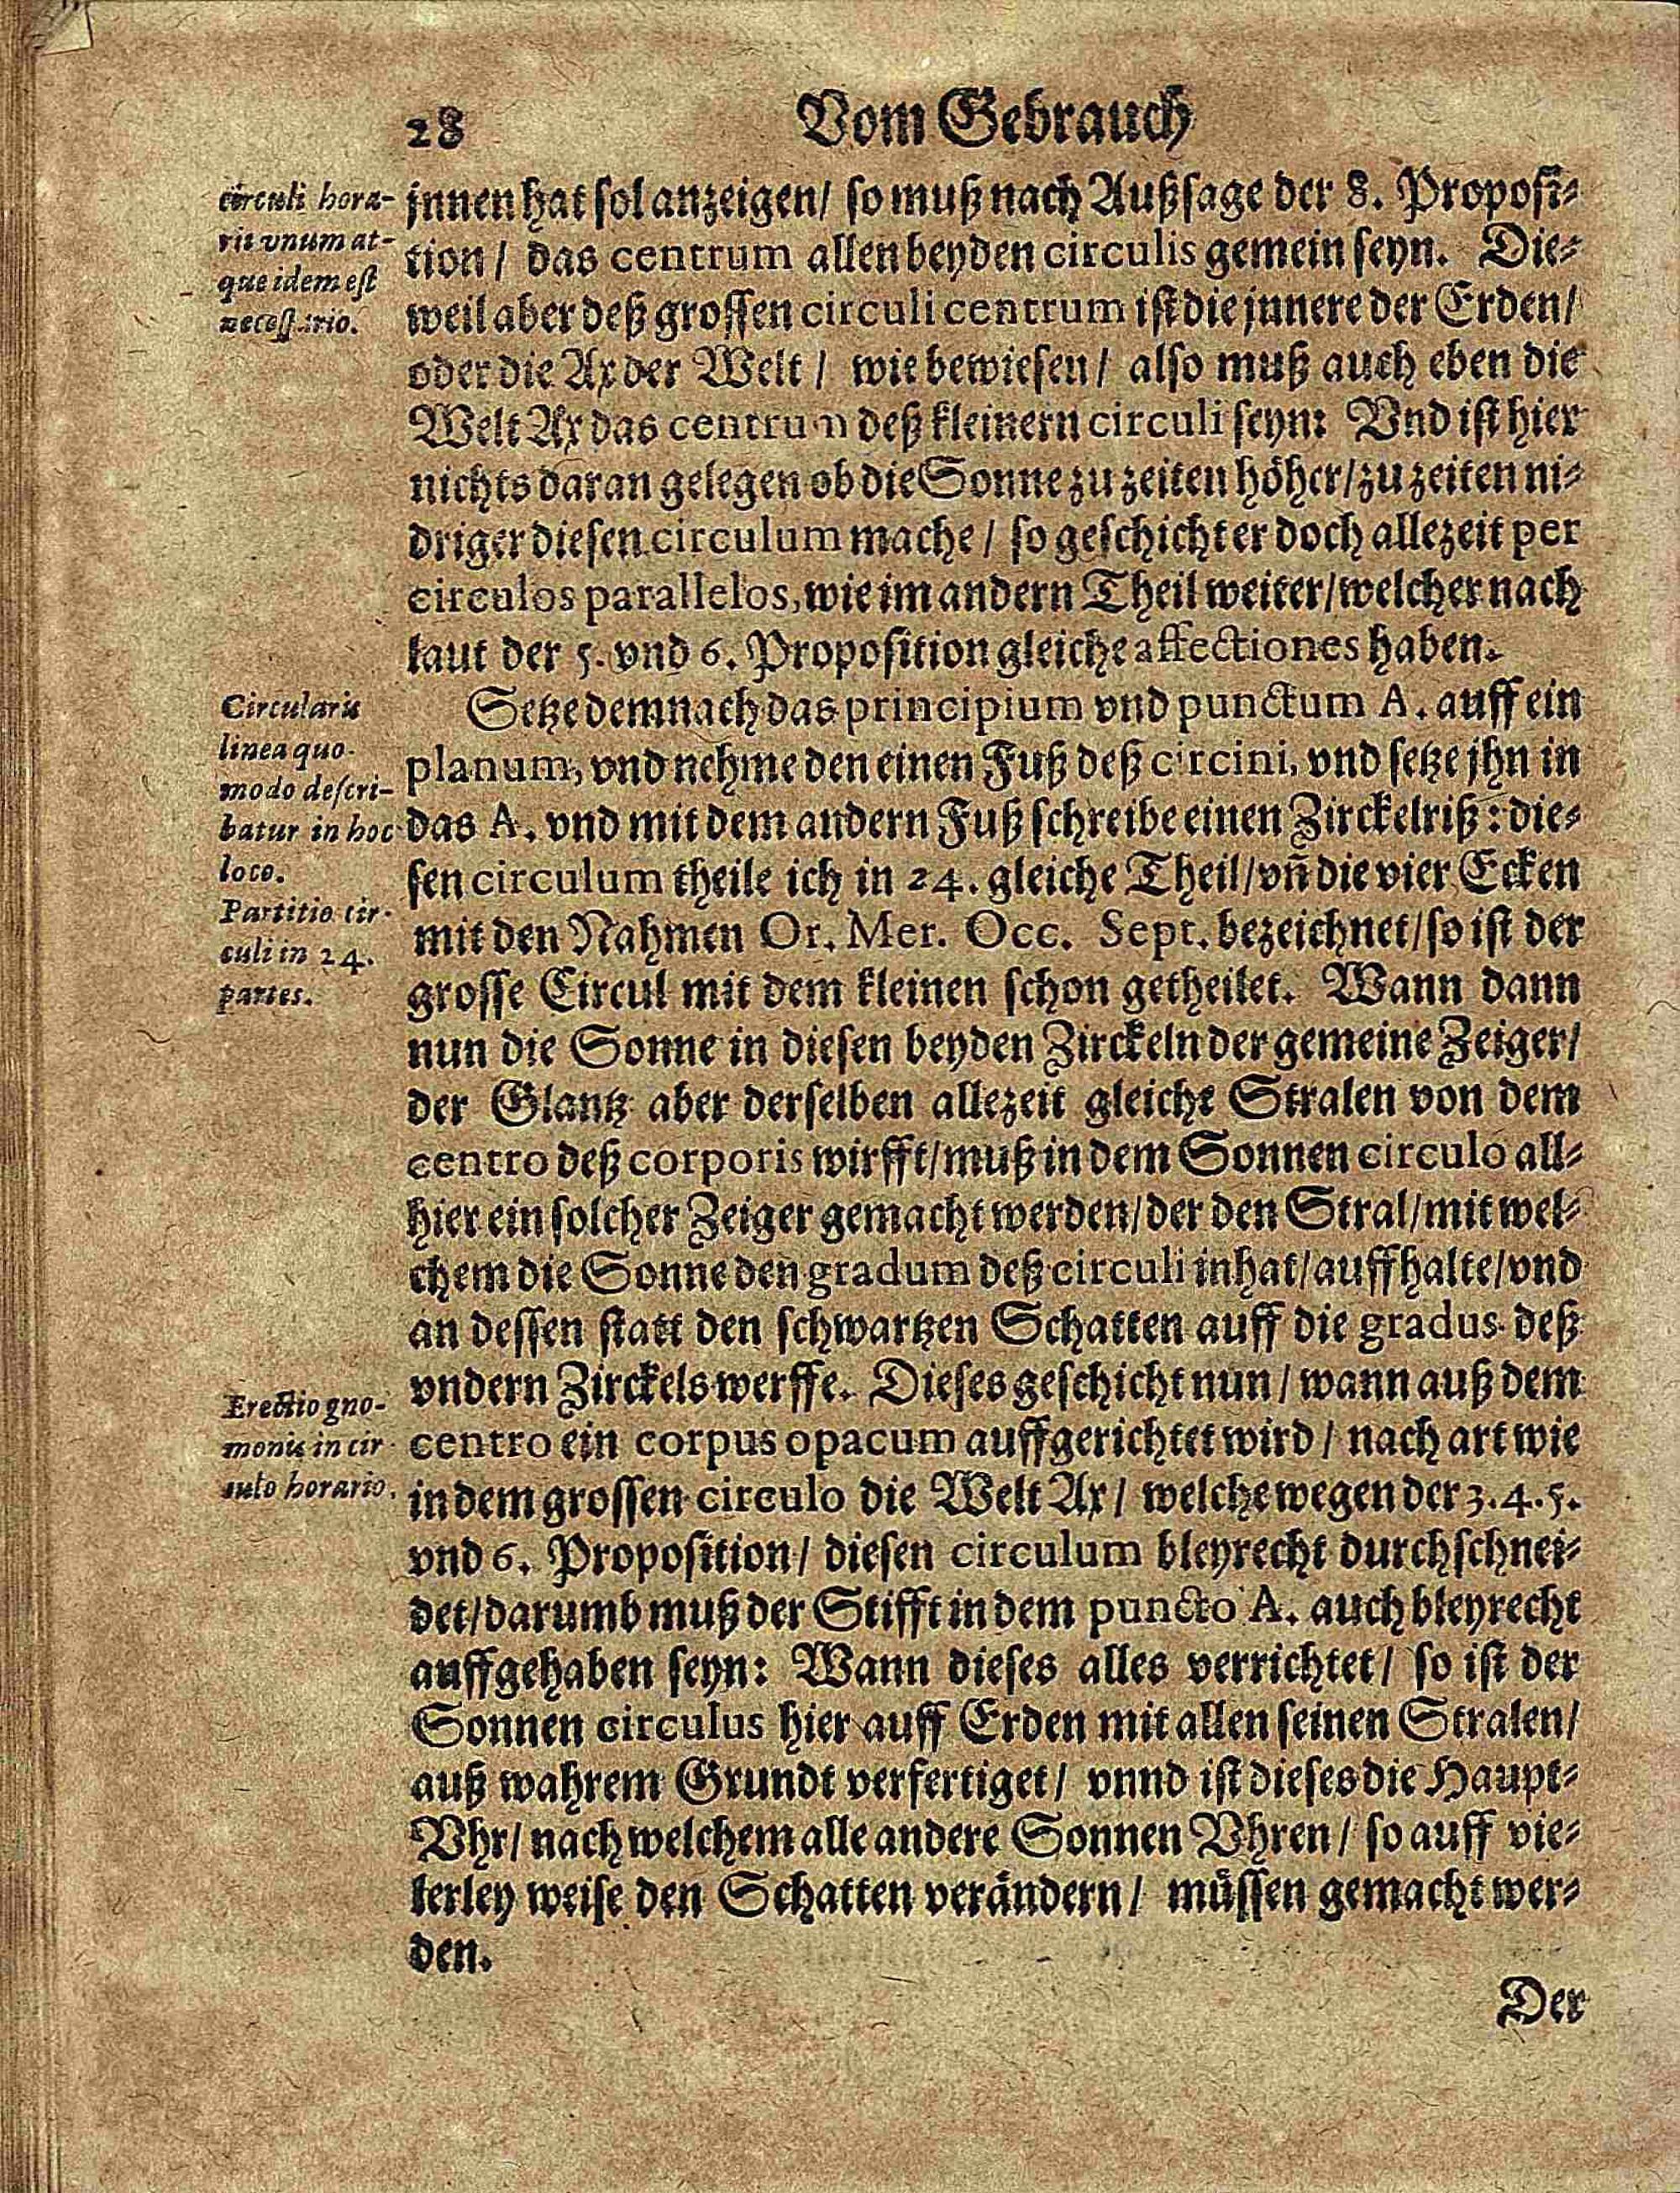 28 Vom Gebrauch
circuli hora-
rii vnum at-
que idem est
necessario.
jnnen hat sol anzeigen/ so muß nach Außsage der 8. Proposi-
tion/ das centrum allen beyden circulis gemein seyn. Die-
weil aber deß grossen circuli centrum ist die jnnere der Erden/
oder die Ax der Welt/ wie bewiesen/ also muß auch eben die
Welt Ax das centrum deß kleinern circuli seyn: Vnd ist hier
nichts daran gelegen ob die Sonne zu zeiten höher/ zu zeiten ni-
driger diesen circulum mache/ so geschicht er doch allezeit per
circulos parallelos, wie im andern Theil weiter/ welcher nach
laut der 5. vnd 6. Proposition gleiche affectiones haben.
Circularis
linea quo-
modo descri-
batur in hoc
loco.
Partitio cir-
culi in 24.
partes.
Setze demnach das principium vnd punctum A. auff ein
planum, vnd nehme den einen Fuß deß circini, vnd setze jhn in
das A. vnd mit dem andern Fuß schreibe einen Zirckelriß: die-
sen circulum theile ich in 24. gleiche Theil/ vñ die vier Ecken
mit den Nahmen Or. Mer. Occ. Sept. bezeichnet/ so ist der
grosse Circul mit dem kleinen schon getheilet. Wann dann
nun die Sonne in diesen beyden Zirckeln der gemeine Zeiger/
der Glantz aber derselben allezeit gleiche Stralen von dem
centro deß corporis wirfft/ muß in dem Sonnen circulo all-
hier ein solcher Zeiger gemacht werden/ der den Stral/ mit wel-
chem die Sonne den gradum deß circuli inhat/ auffhalte/ vnd
an dessen statt den schwartzen Schatten auff die gradus deß
vndern Zirckels werffe. Dieses geschicht nun/ wann auß dem
centro ein corpus opacum auffgerichtet wird/ nach art wie
in dem grossen circulo die Welt Ax/ welche wegen der 3. 4. 5.
vnd 6. Proposition/ diesen circulum bleyrecht durchschnei-
det/ darumb muß der Stifft in dem puncto A. auch bleyrecht
auffgehaben seyn: Wann dieses alles verrichtet/ so ist der
Sonnen circulus hier auff Erden mit allen seinen Stralen/
auß wahrem Grundt verfertiget/ vnnd ist dieses die Haupt-
Vhr/ nach welchem alle andere Sonnen Vhren/ so auff vie-
lerley weise den Schatten verändern/ müssen gemacht wer-
den.
Erectio gno-
monis in cir-
culo horario.
Der